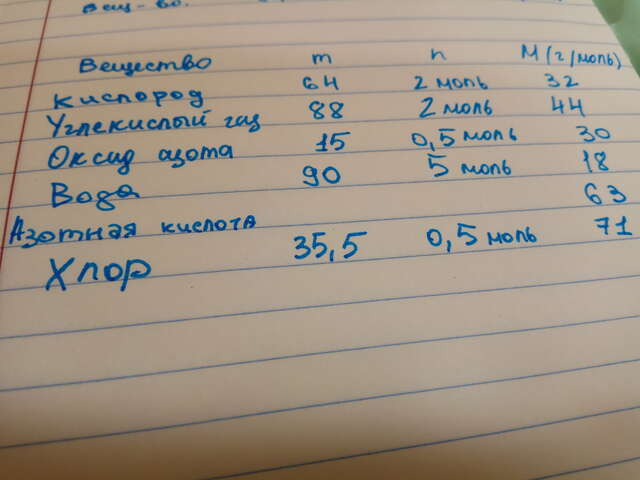 Вещ-во.
Вещество m n M (г/моль)
Кислород 64 2 моль 32
Углекислый газ 88 2 моль 44
Оксид азота 15 0,5 моль 30
Вода 90 5 моль 18
Азотная кислота 63
Хлор 35,5 0,5 моль 71